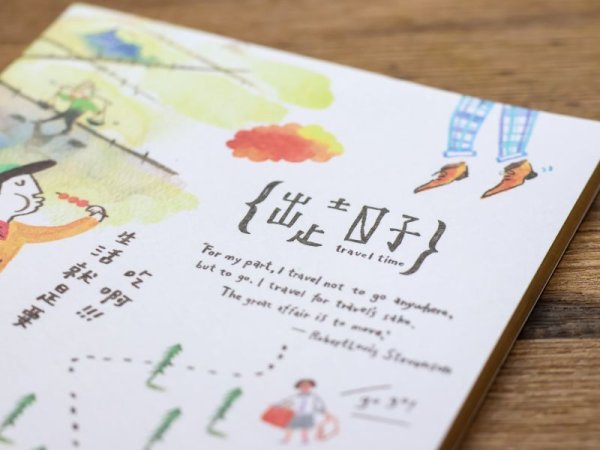 {出走日子}
travel time
"For my part, I travel not to go anywhere,
but to go. I travel for travel's sake.
The great affair is to move."
— Robert Louis Stevenson
生活就是要
吃啊!!!